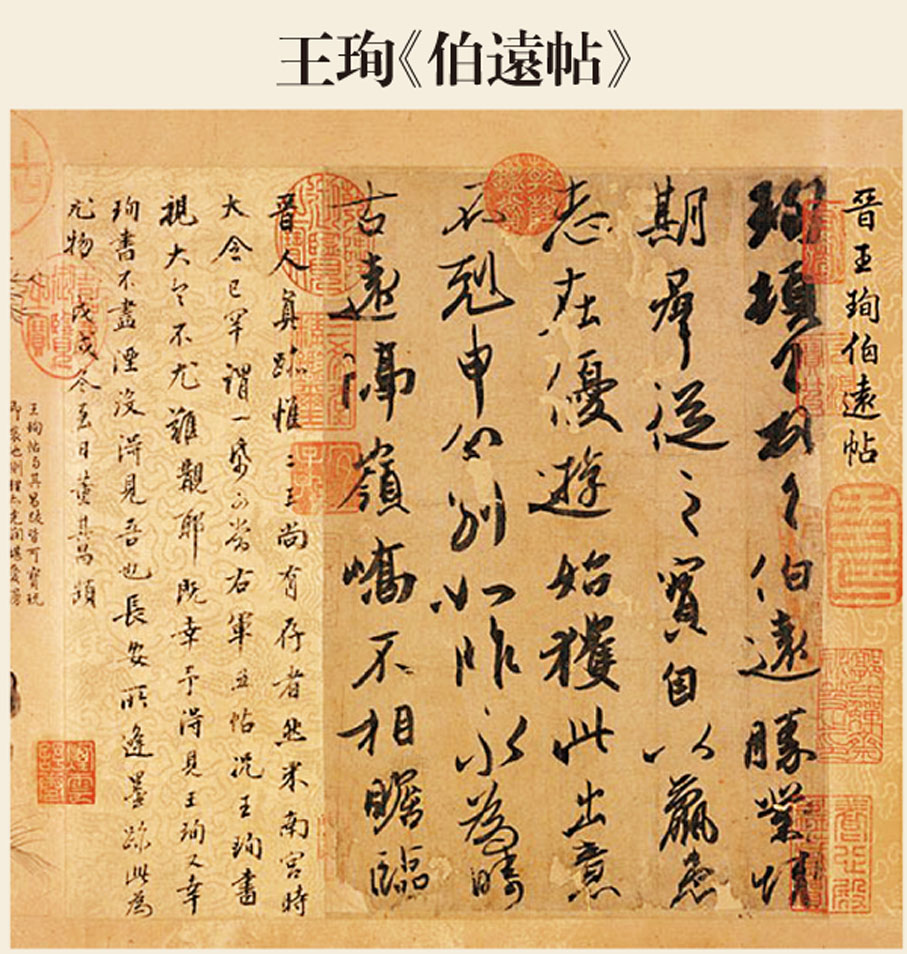 王珣《伯遠帖》
晉王珣伯遠帖
珣頓首頓首伯遠勝業情
期群從之寶自以羸患
志在優遊始獲此出意
不剋申分別如昨永為疇
古遠隔嶺嶠不相瞻臨
晉人真跡惟二王尚有存者然米南宮時
大令已罕謂一紙可當右軍五帖況王珣書
視大令不尤難覯耶既幸予得見王珣又幸
珣書不盡湮沒得見吾也長安所逢墨跡此為
尤物 戊戌冬至日董其昌題
王珣帖與其昌跋皆可寶玩
即裝池側理亦光潤堪愛